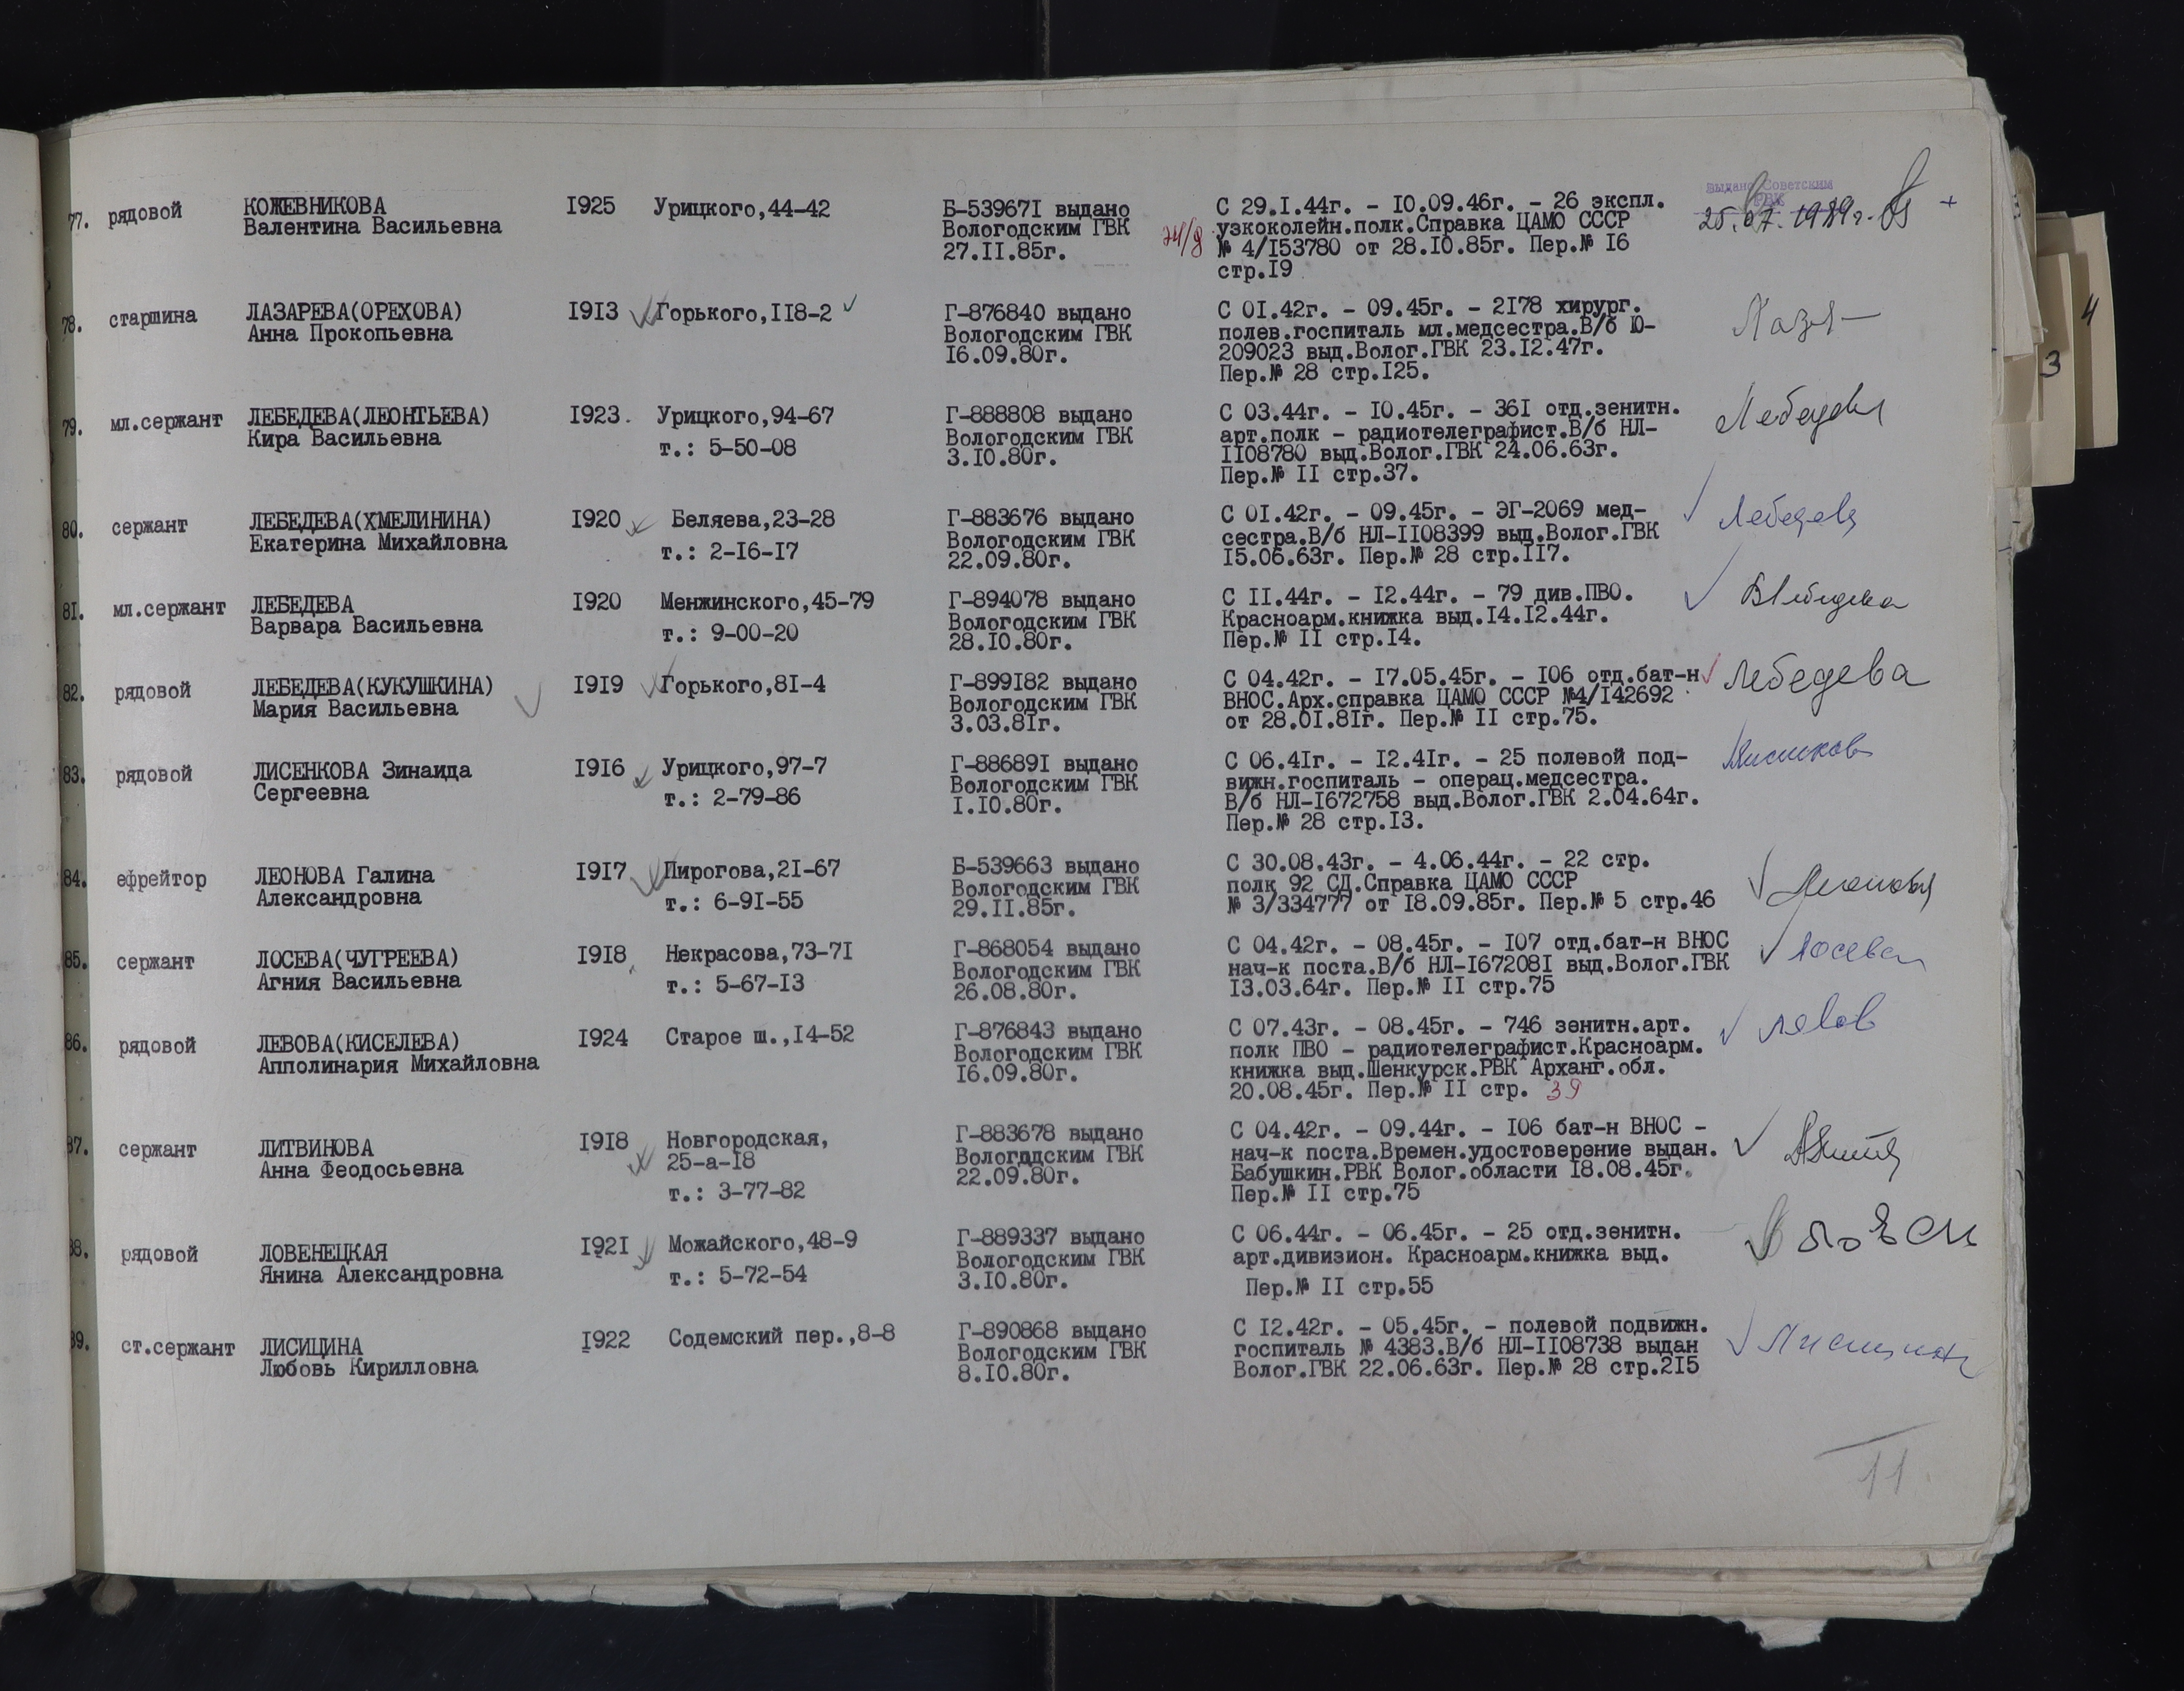 77. рядовой КОЖЕВНИКОВА I925 Урицкого,44-42 Б-53967I выдано С 29.I.44г. - I0.09.46г. - 26 экспл. выдано Советским РВК
Валентина Васильевна Вологодским ГВК узкоколейн.полк.Справка ЦАМО СССР 25.07.1989г. +
27.II.85г. № 4/I53780 от 28.I0.85г. Пер.№ I6
стр.I9
78. старшина ЛАЗАРЕВА(ОРЕХОВА) I9I3 Горького,II8-2 Г-876840 выдано С 0I.42г. - 09.45г. - 2I78 хирург.
Анна Прокопьевна Вологодским ГВК полев.госпиталь мл.медсестра.В/б Ю-
I6.09.80г. 209023 выд.Волог.ГВК 23.I2.47г.
Пер.№ 28 стр.I25.
79. мл.сержант ЛЕБЕДЕВА(ЛЕОНТЬЕВА) I923. Урицкого,94-67 Г-888808 выдано С 03.44г. - I0.45г. - 36I отд.зенитн. Лебедева
Кира Васильевна т.: 5-50-08 Вологодским ГВК арт.полк - радиотелеграфист.В/б НЛ-
3.I0.80г. II08780 выд.Волог.ГВК 24.06.63г.
Пер.№ II стр.37.
80. сержант ЛЕБЕДЕВА(ХМЕЛИНИНА) I920 Беляева,23-28 Г-883676 выдано С 0I.42г. - 09.45г. - ЭГ-2069 мед- Лебедева
Екатерина Михайловна т.: 2-I6-I7 Вологодским ГВК сестра.В/б НЛ-II08399 выд.Волог.ГВК
22.09.80г. I5.06.63г. Пер.№ 28 стр.II7.
8I. мл.сержант ЛЕБЕДЕВА I920 Менжинского,45-79 Г-894078 выдано С II.44г. - I2.44г. - 79 див.ПВО. ВЛебедева
Варвара Васильевна т.: 9-00-20 Вологодским ГВК Красноарм.книжка выд.I4.I2.44г.
28.I0.80г. Пер.№ II стр.I4.
82. рядовой ЛЕБЕДЕВА(КУКУШКИНА) I9I9 Горького,8I-4 Г-899I82 выдано С 04.42г. - I7.05.45г. - I06 отд.бат-н Лебедева
Мария Васильевна Вологодским ГВК ВНОС.Арх.справка ЦАМО СССР №4/I42692
3.03.8Iг. от 28.0I.8Iг. Пер.№ II стр.75.
83. рядовой ЛИСЕНКОВА Зинаида I9I6 Урицкого,97-7 Г-88689I выдано С 06.4Iг. - I2.4Iг. - 25 полевой под-
Сергеевна т.: 2-79-86 Вологодским ГВК вижн.госпиталь - операц.медсестра.
I.I0.80г. В/б НЛ-I672758 выд.Волог.ГВК 2.04.64г.
Пер.№ 28 стр.I3.
84. ефрейтор ЛЕОНОВА Галина I9I7 Пирогова,2I-67 Б-539663 выдано С 30.08.43г. - 4.06.44г. - 22 стр. Леонова
Александровна т.: 6-9I-55 Вологодским ГВК полк 92 СД.Справка ЦАМО СССР
29.II.85г. № 3/334777 от I8.09.85г. Пер.№ 5 стр.46
85. сержант ЛОСЕВА(ЧУГРЕЕВА) I9I8 Некрасова,73-7I Г-868054 выдано С 04.42г. - 08.45г. - I07 отд.бат-н ВНОС Лосева
Агния Васильевна т.: 5-67-I3 Вологодским ГВК нач-к поста.В/б НЛ-I67208I выд.Волог.ГВК
26.08.80г. I3.03.64г. Пер.№ II стр.75
86. рядовой ЛЕВОВА(КИСЕЛЕВА) I924 Старое ш.,I4-52 Г-876843 выдано С 07.43г. - 08.45г. - 746 зенитн.арт.
Апполинария Михайловна Вологодским ГВК полк ПВО - радиотелеграфист.Красноарм.
I6.09.80г. книжка выд.Шенкурск.РВК Арханг.обл.
20.08.45г. Пер.№ II стр. 39
87. сержант ЛИТВИНОВА I9I8 Новгородская, Г-883678 выдано С 04.42г. - 09.44г. - I06 бат-н ВНОС -
Анна Феодосьевна 25-а-I8 Вологодским ГВК нач-к поста.Времен.удостоверение выдан.
т.: 3-77-82 22.09.80г. Бабушкин.РВК Волог.области I8.08.45г.
Пер.№ II стр.75
88. рядовой ЛОВЕНЕЦКАЯ I92I Можайского,48-9 Г-889337 выдано С 06.44г. - 06.45г. - 25 отд.зенитн.
Янина Александровна т.: 5-72-54 Вологодским ГВК арт.дивизион. Красноарм.книжка выд.
3.I0.80г. Пер.№ II стр.55
89. ст.сержант ЛИСИЦИНА I922 Содемский пер.,8-8 Г-890868 выдано С I2.42г. - 05.45г. - полевой подвижн. Лисицина
Любовь Кирилловна Вологодским ГВК госпиталь № 4383.В/б НЛ-II08738 выдан
8.I0.80г. Волог.ГВК 22.06.63г. Пер.№ 28 стр.2I5
11.
3
4